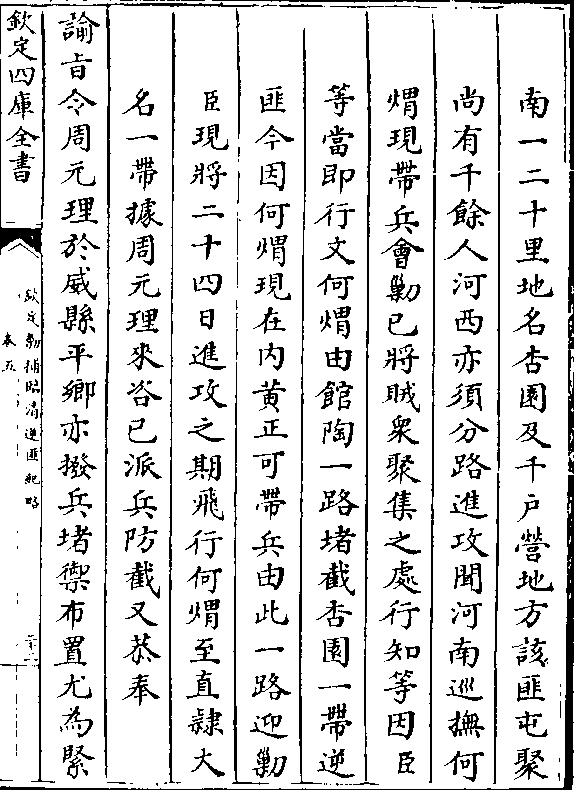 南一二十里地名杏園及千戶營地方該匪屯聚
尚有千餘人河西亦須分路進攻聞河南巡撫何
煟現帶兵會勦已將賊衆聚集之處行知等因臣
等當即行文何煟由館陶一路堵截杏園一帶逆
匪今因何煟現在内黄正可帶兵由此一路迎勦
臣現將二十四日進攻之期飛行何煟至直隸大
名一帶據周元理來咨已派兵防截又恭奉
諭㫖令周元理於威縣平鄉亦撥兵堵禦布置尤為緊
欽定四庫全書
欽定勦捕臨清逆匪紀略
卷五